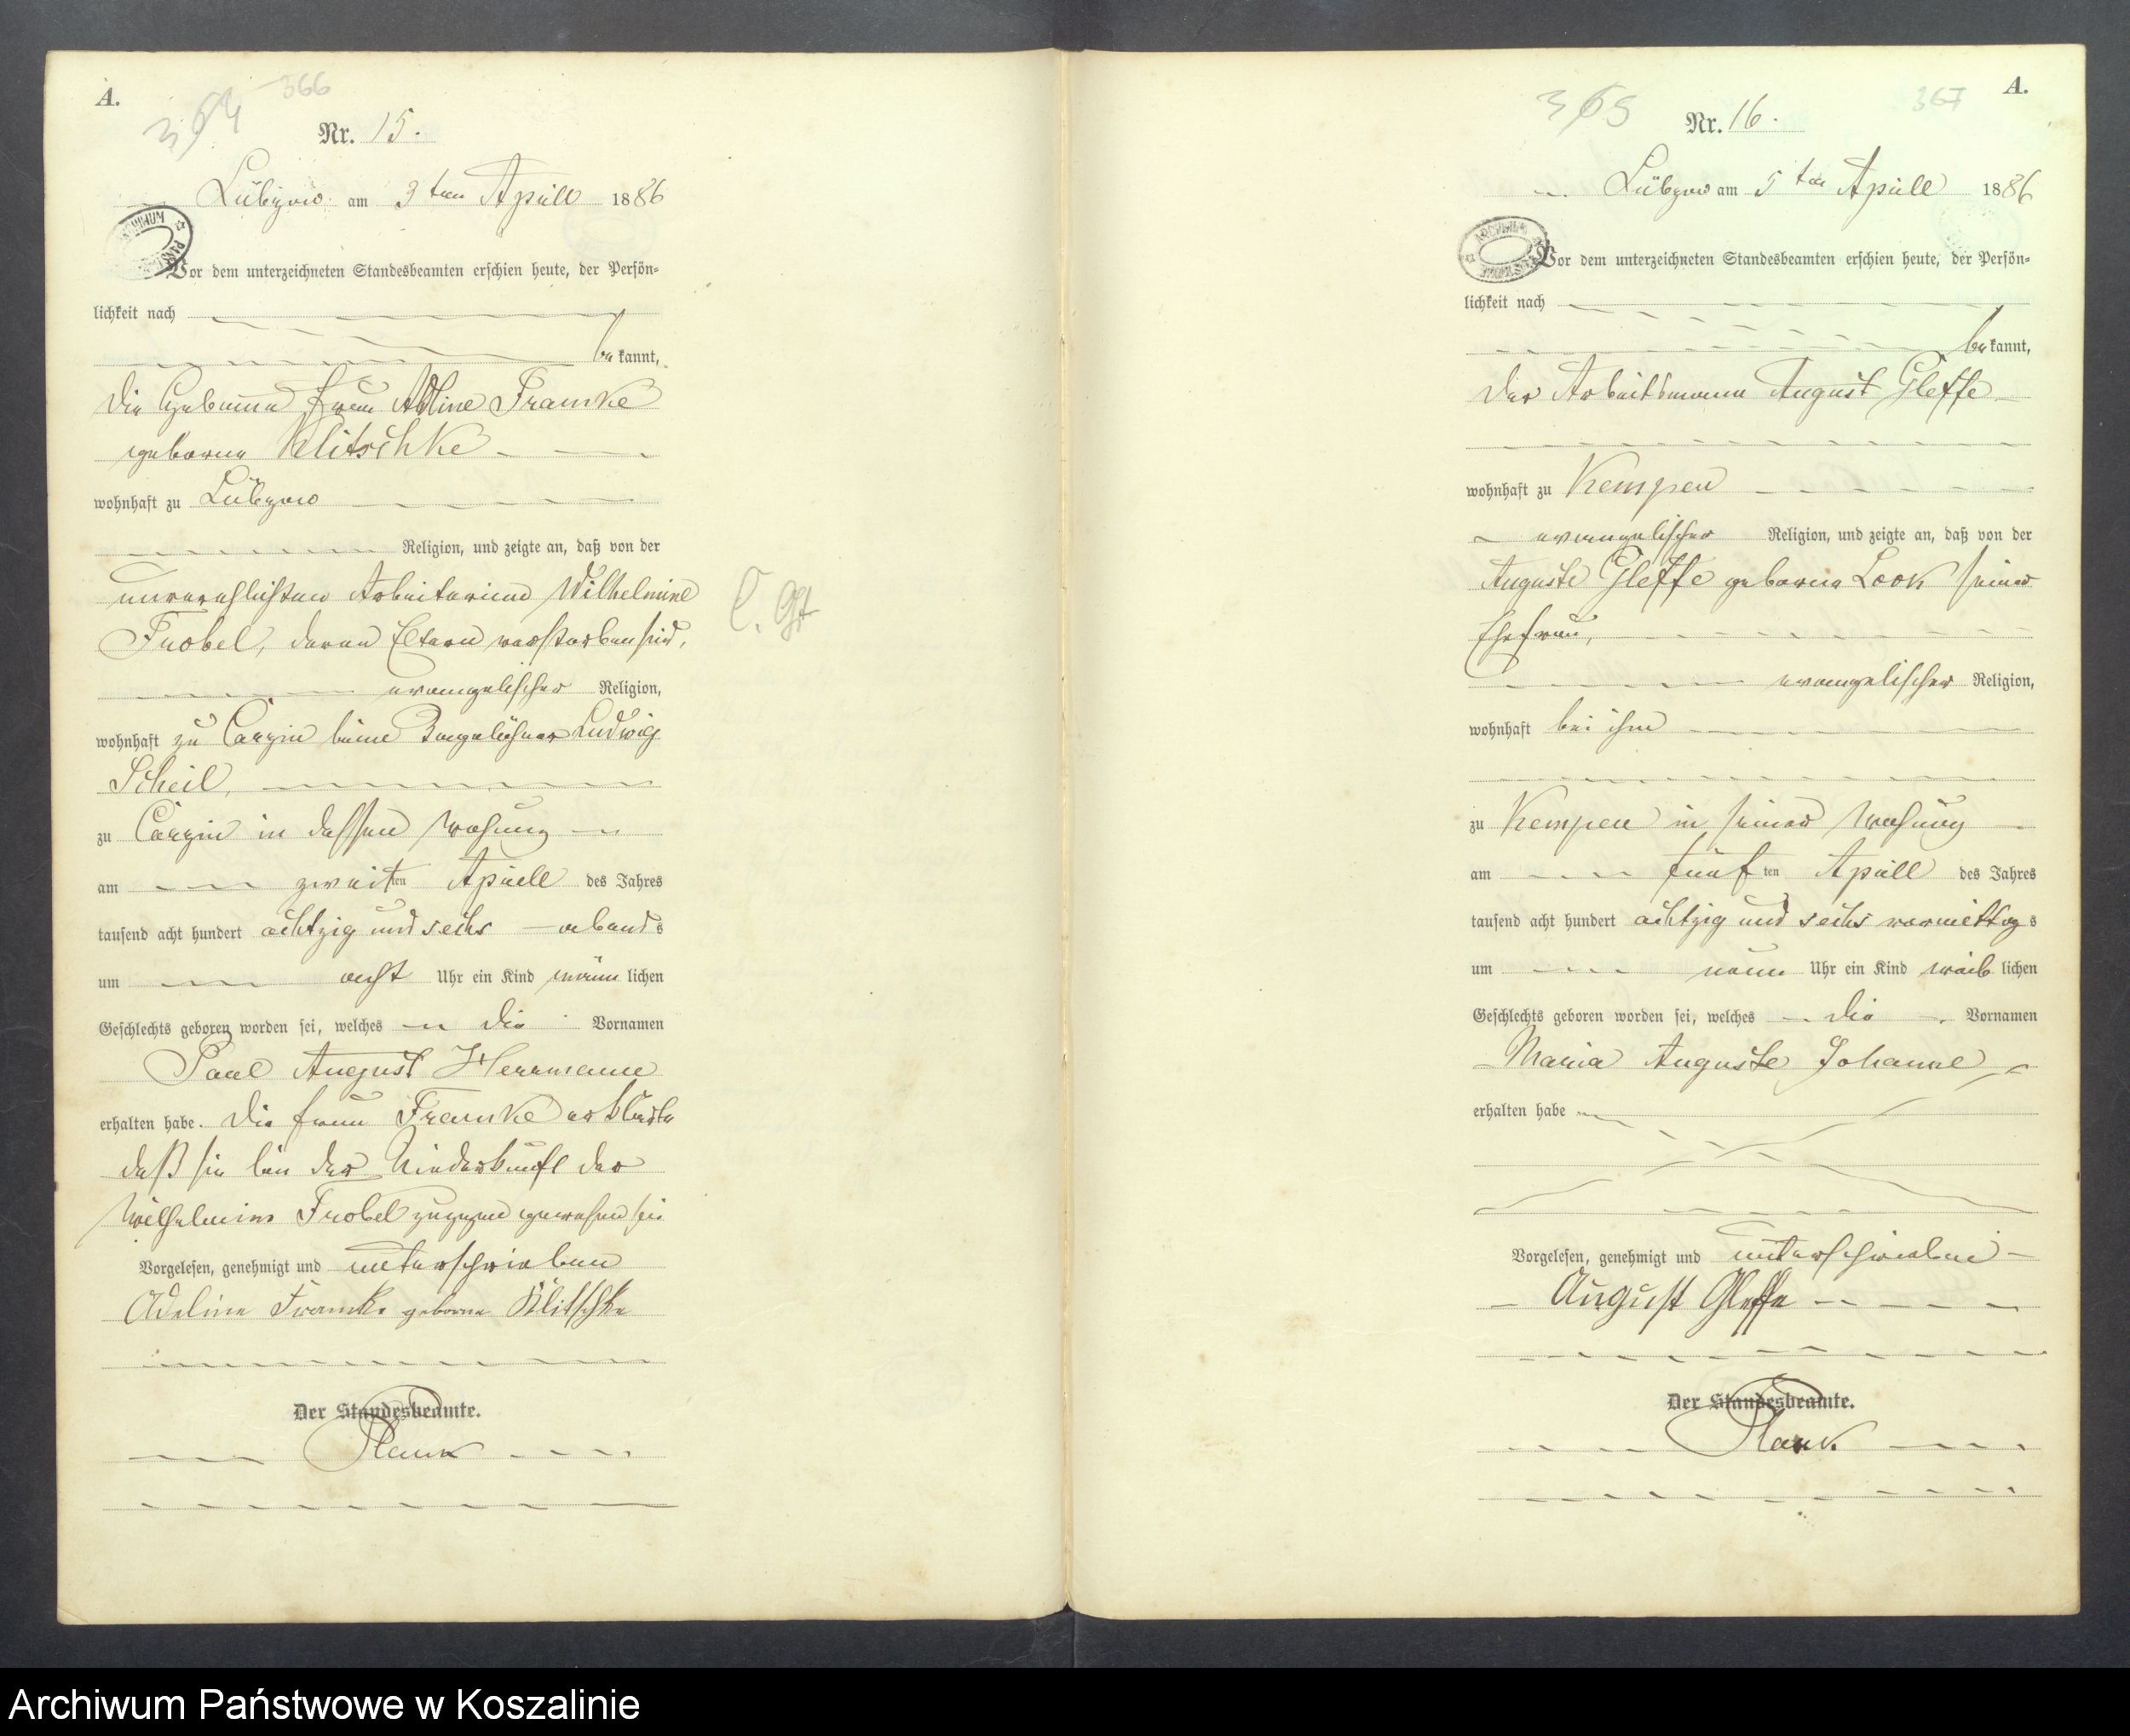 A.
364
366
Nr. 15.
Lübzow am 3 ten Aprill 1886
Vor dem unterzeichneten Standesbeamten erschien heute, der Persön-
lichkeit nach
be kannt,
die Hebamme Frau Adline Framke
geborne Klitschke
wohnhaft zu Lübzow
Religion, und zeigte an, daß von der
unverehlichten Arbeiterinn Wilhelmine
Frobel, deren Eltern verstorben sind,
evangelischer Religion,
wohnhaft zu Carzin beim Ludwig
Scheil,
zu Carzin in dessen Wohung
am zweiten Aprill des Jahres
tausend acht hundert achtzig und sechs abends
um acht Uhr ein Kind männlichen
Geschlechts geboren worden sei, welches die Vornamen
Paul August Herrmann
erhalten habe. Die Frau Framke erklärte
daß sie bei der Niederkunft der
Wilhelmine Frobel zugegen gewesen sei
Vorgelesen, genehmigt und unterschrieben
Adeline Framke geborne Klitschke
Der Standesbeamte.
Plank
A.
365
367
Nr. 16.
Lübzow am 5 ten Aprill 1886
Vor dem unterzeichneten Standesbeamten erschien heute, der Persön-
lichkeit nach
be kannt,
der Arbeitsmann August Gleffe
wohnhaft zu Kempen
evangelischer Religion, und zeigte an, daß von der
Auguste Gleffe geborne Look seiner
Ehefrau,
evangelischer Religion,
wohnhaft bei ihm
zu Kempen in seiner Wohung
am fünf ten Aprill des Jahres
tausend acht hundert achtzig und sechs vormittags
um neun Uhr ein Kind weib lichen
Geschlechts geboren worden sei, welches die Vornamen
Maria Auguste Johanne
erhalten habe
Vorgelesen, genehmigt und unterschrieben
August Gleffe
Der Standesbeamte.
Plank
Archiwum Państwowe w Koszalinie